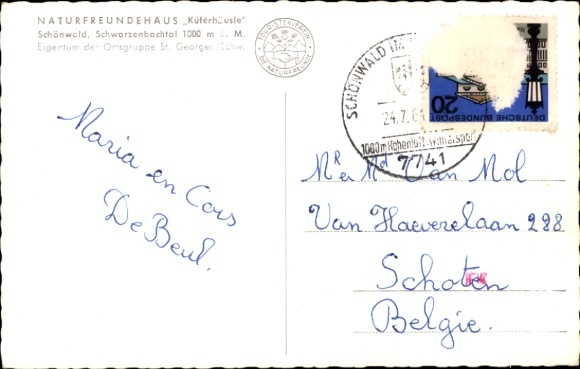 NATURFREUNDEHAUS „Küferhäusle"
Schönwald, Schwarzenbachtal 1000 m ü. M.
Eigentum der Ortsgruppe St. Georgen/Schw.
TOURISTENVEREIN
DIE NATURFREUNDE
SCHÖNWALD IM
24.7.6
1000 m Höhenluft-Wintersport
7741
20
DEUTSCHE BUNDESPOST
Maria en Cois
De Beul.
Mr e Md Van Mol
Van Haeverelaan 288
Schoten
Belgie.